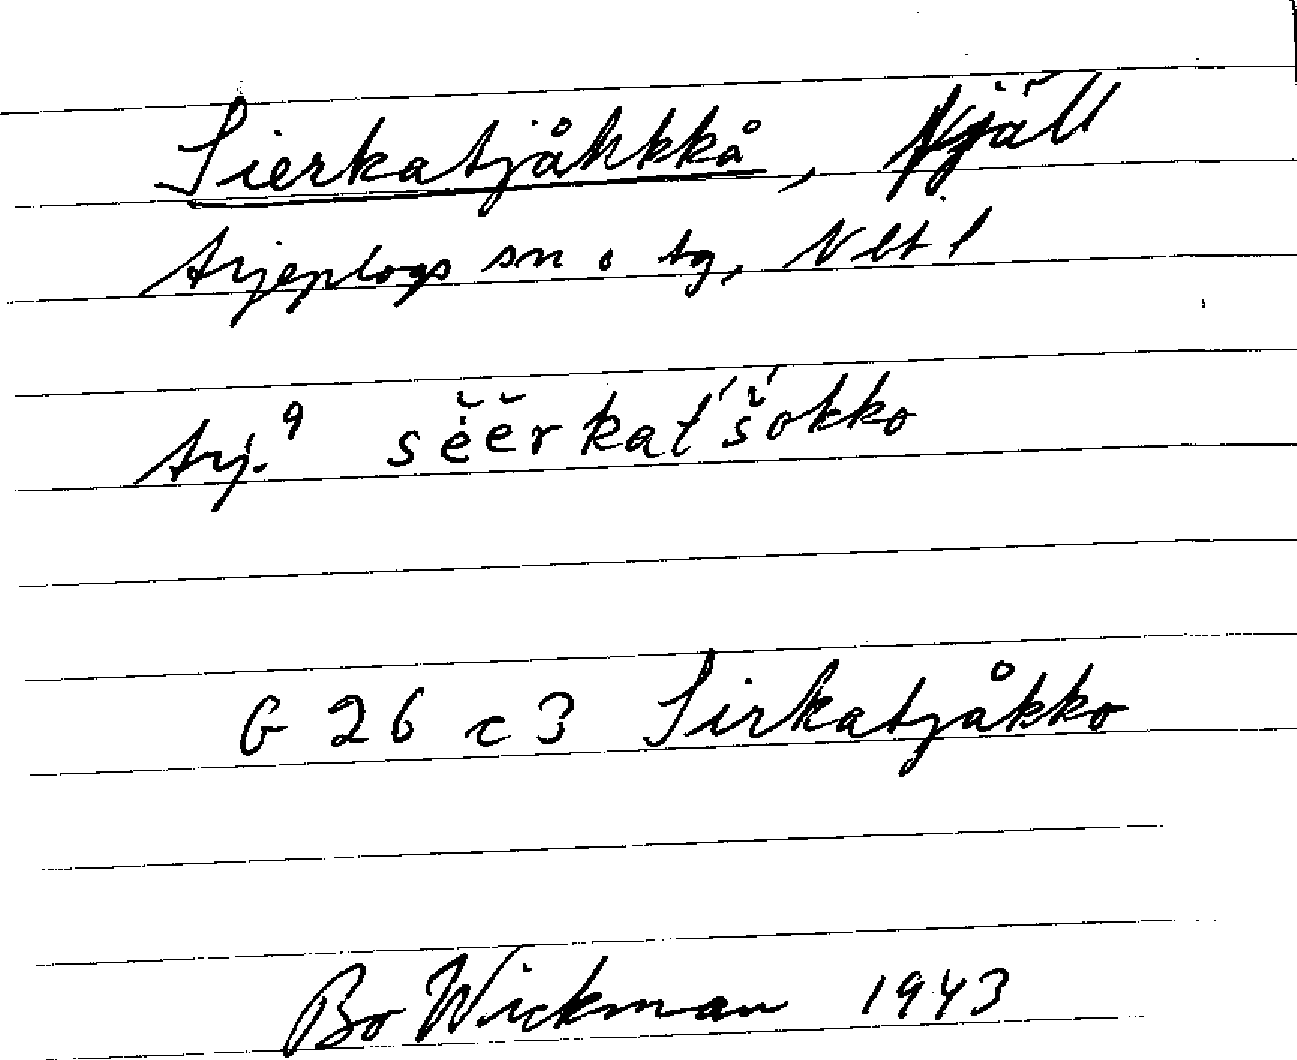 Sierkatjåhkkå, fjäll
Arjeplogs sn o tg, Nbt l
Arj. 9 sė̆ĕrkat́š́okko
G 26 c 3 Sirkatjåkko
Bo Wickman 1943